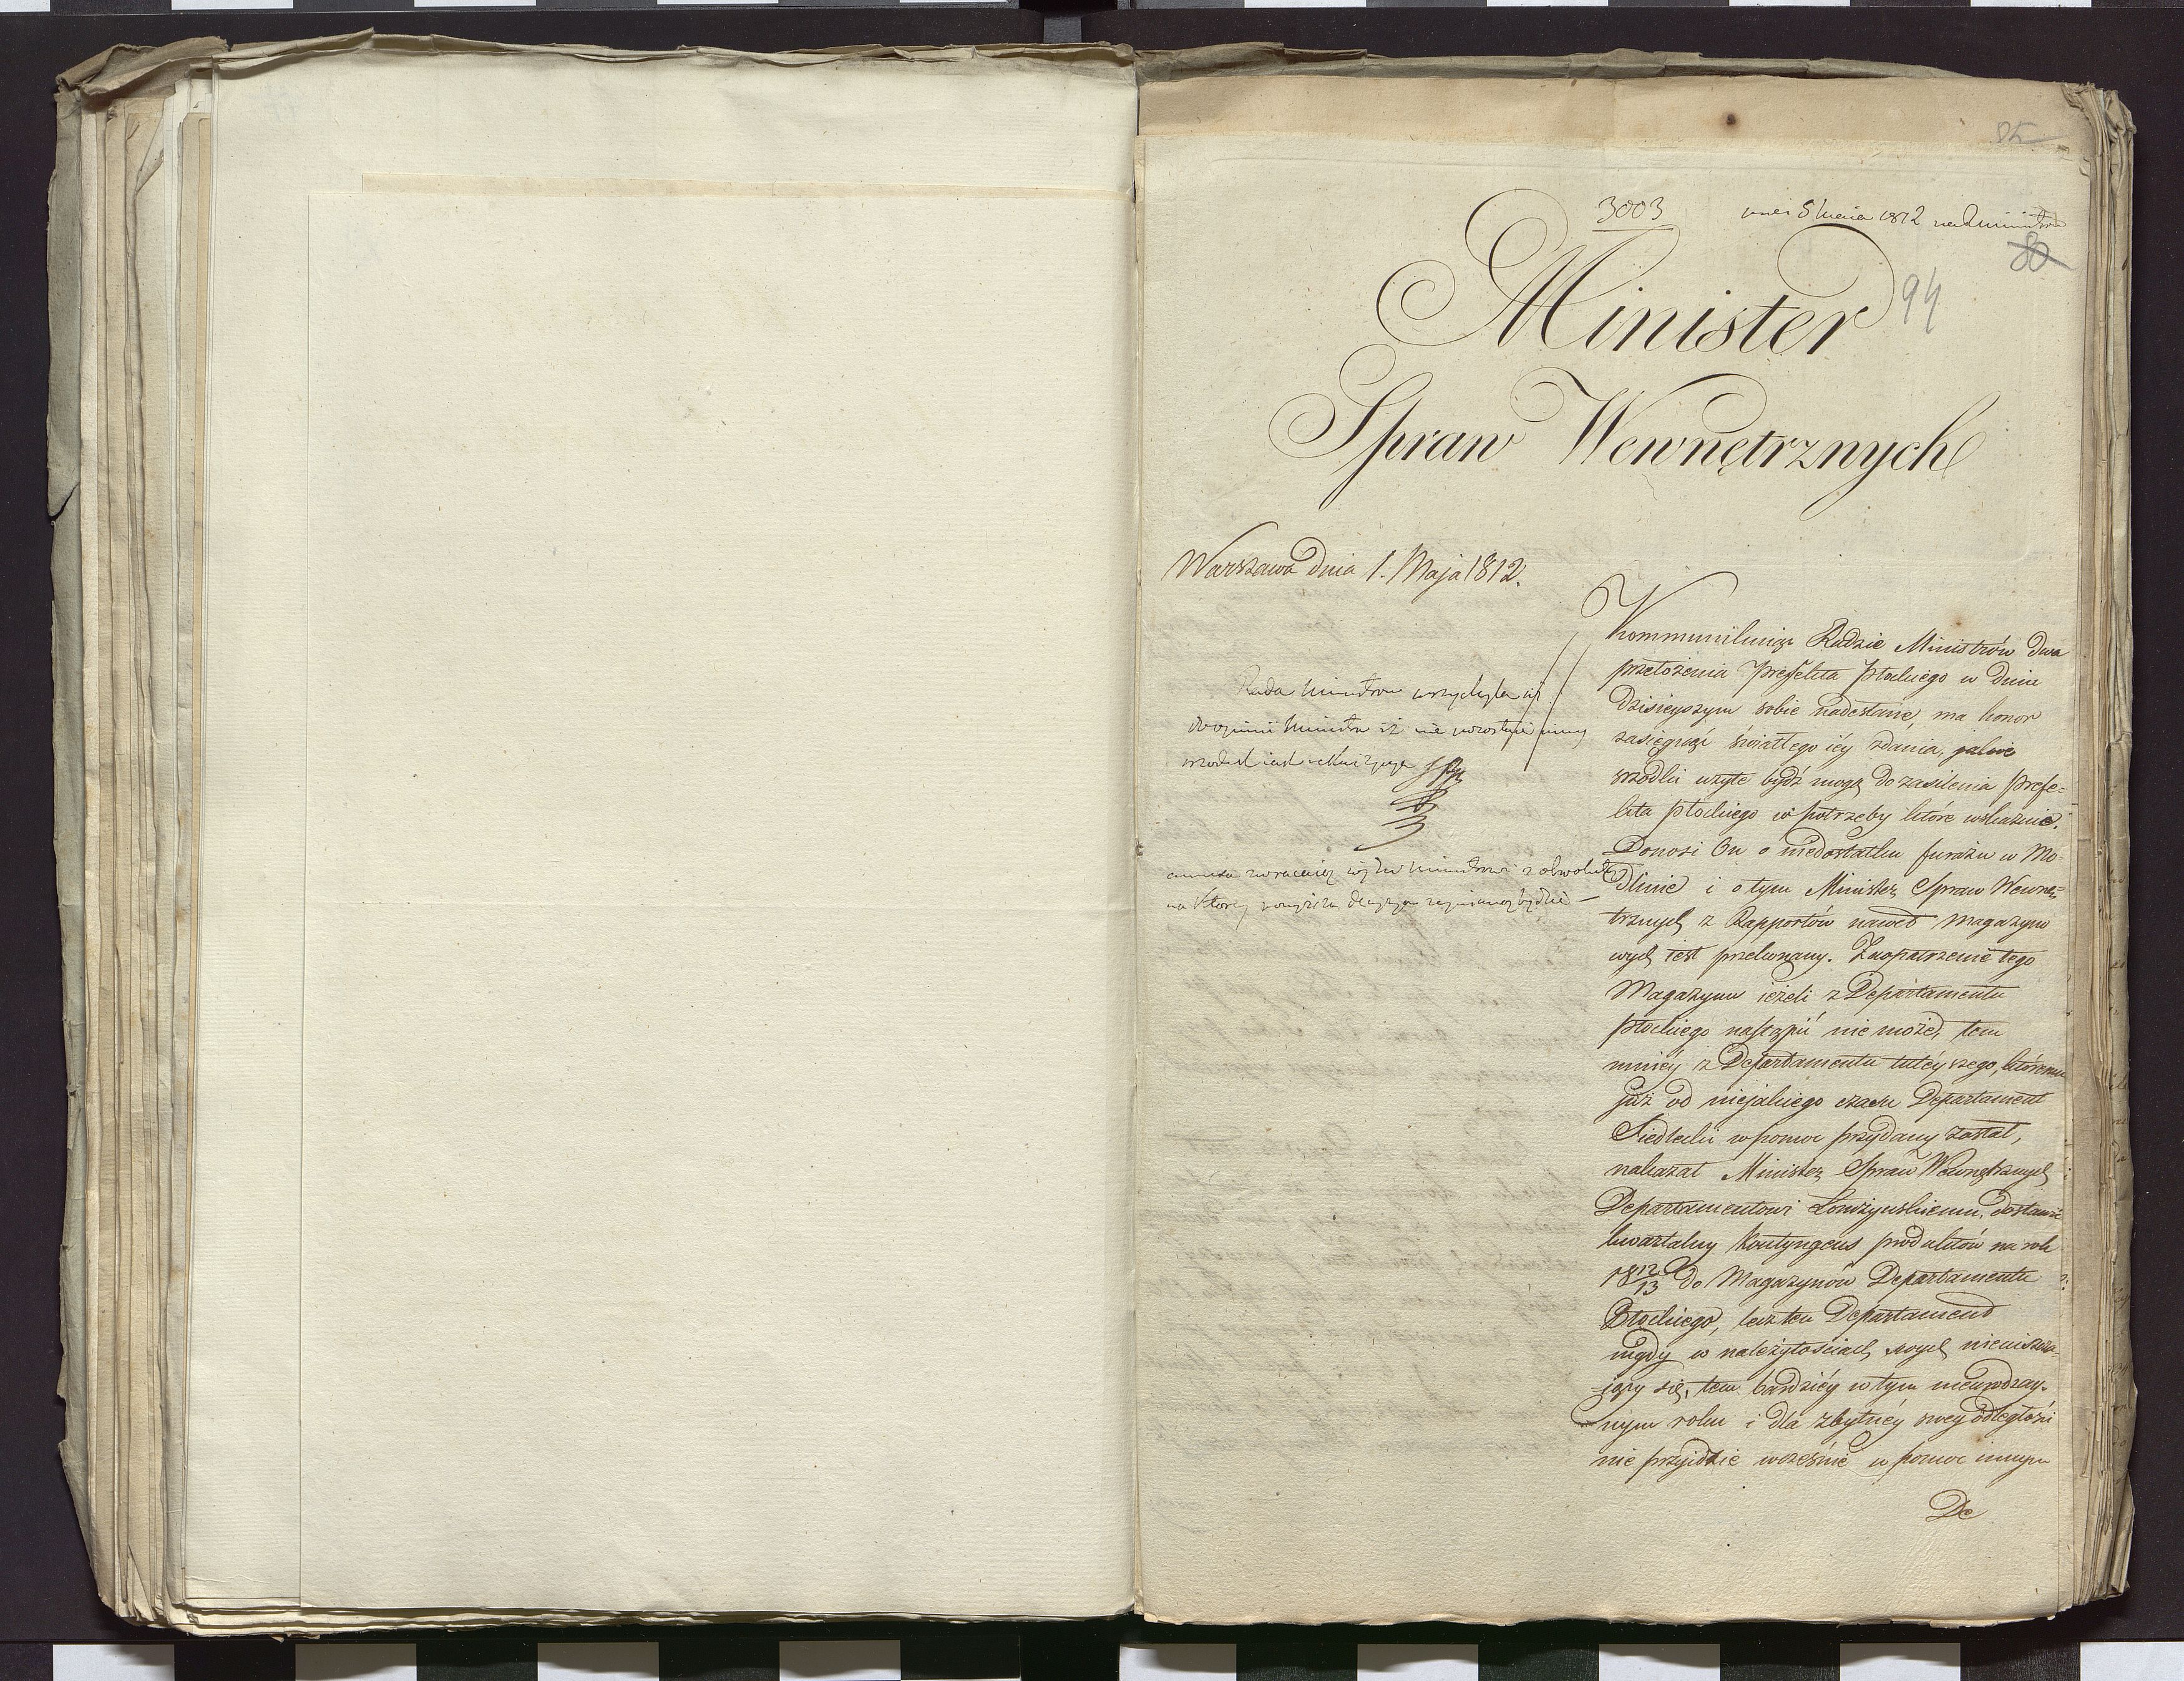 85
3003
5 maia 1812
80
94
Minister
Spraw Wewnętrznych
Warszawa dnia 1. Maja 1812.
Kommunikuiąc Radzie Ministrów dwa
przełożenia Prefekta Płockiego w dniu
dzisieyszym sobie nadesłane, ma honor
zasięgnąć światłego iéy zdania, jakie
srzodki użyte bydź mogą do zasilenia Prefe-
kta Płockiego w potrzeby które wskazuie.
Donosi On o niedostatku furażu w Mo-
dlinie i o tym Minister Spraw Wewnę-
trznych z Rapportów nawed Magazyno
wych iest przekonany. Zaopatrzenie tego
Magazynu ieżeli z Departamentu
Płockiego nastąpić nie może, tem
mniéy z Departamentu tutéyszego, któremu
już od niejakiego czasu Departament
Siedlecki w pomoc przydany został,
nakazał Minister Spraw Wewnętrznych
Departamentowi Łomżyńskiemu, dostawić
kwartalny Kontyngens produktów na rok
1812/13 do Magazynów Departamentu
Płockiego, lecz ten Departament
nigdy w należytościach swych nieuiszcza-
=iący się, tem bardziéy w tym nieurodzay-
nym roku i dla zbytniéy swey odległości
nie przyidzie wcześnie w pomoc innym
De
Rada Ministrów przychyla się
do opinii Ministra iż nie pozostaie inny
srzodek iak
zwracaią się Ministrowi z obwolutą
na któréy decyzya będzie —